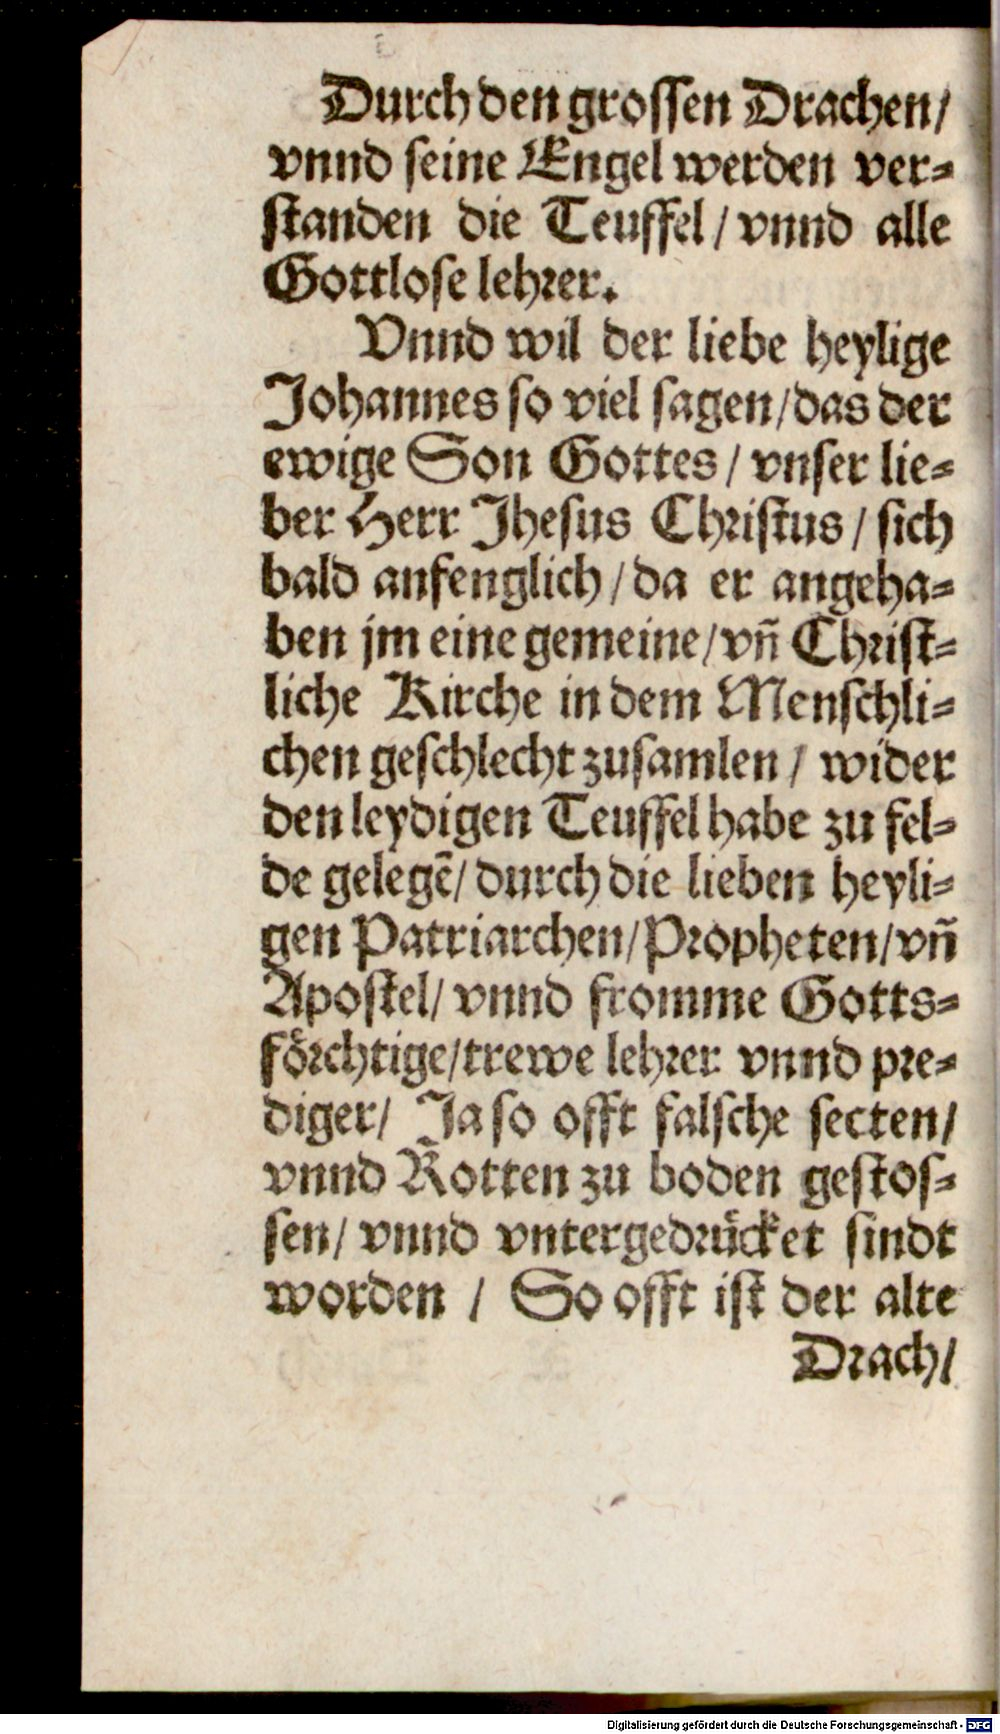 Durch den groſſen Drachen/
vnnd ſeine Engel werden ver⸗
ſtanden die Teuffel/ vnnd alle
Gottloſe lehrer.
Vnnd wil der liebe heylige
Johannes ſo viel ſagen/ das der
ewige Son Gottes/ vnſer lie⸗
ber Herr Jheſus Chriſtus/ ſich
bald anfenglich/ da er angeha⸗
ben jm eine gemeine/ vn̄ Chriſt⸗
liche Kirche in dem Menſchli⸗
chen geſchlecht zuſamlen/ wider
den leydigen Teuffel habe zu fel⸗
de gelegē/ durch die lieben heyli⸗
gen Patriarchen/ Propheten/ vn̄
Apoſtel/ vnnd fromme Gotts⸗
foͤrchtige/ trewe lehrer vnnd pre⸗
diger/ Ja ſo offt falſche ſecten/
vnnd Rotten zu boden geſtoſ⸗
ſen/ vnnd vntergedruͤcket ſindt
worden / So offt iſt der alte
Drach/
Digitalisierung gefördert durch die Deutsche Forschungsgemeinschaft - DFG